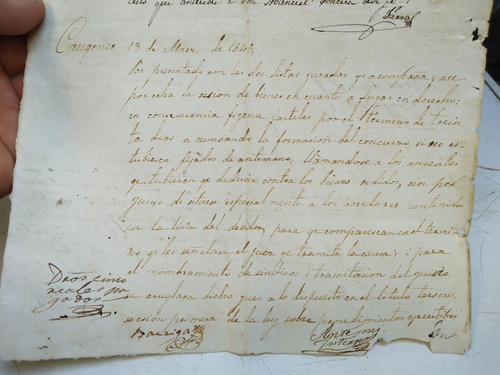 que Manuel
Cauqenes 13 de Marz. de 1845
Por presentado con las dos listas juradas qe acompaña, y ase
por echa la sesion de bienes en cuanto a lugar en derecho;
en consecuencia fijense carteles por el término de trein
ta dias anunsando la formasion del concurso, si no es
tubieren fijados de antemano; llamandose a los ausentes
qe tubieren qe dedusir contra los bienes sedidos, sin per
juisio de sitarse espesialmente a los acreedores contenidos
en la lista del deudor, para qe comparescan en el termi
no qe les señalare el juez qe tramite la causa; i para
el nombramiento de sindicos i tramitasion del juisio,
se arreglara dicho jues a lo dispuesto en el titulo tersero,
sesion primera de la ley sobre prosedimientos ejecutibos
Dros cinco
reales pa
gados
Barriga
Ante mi